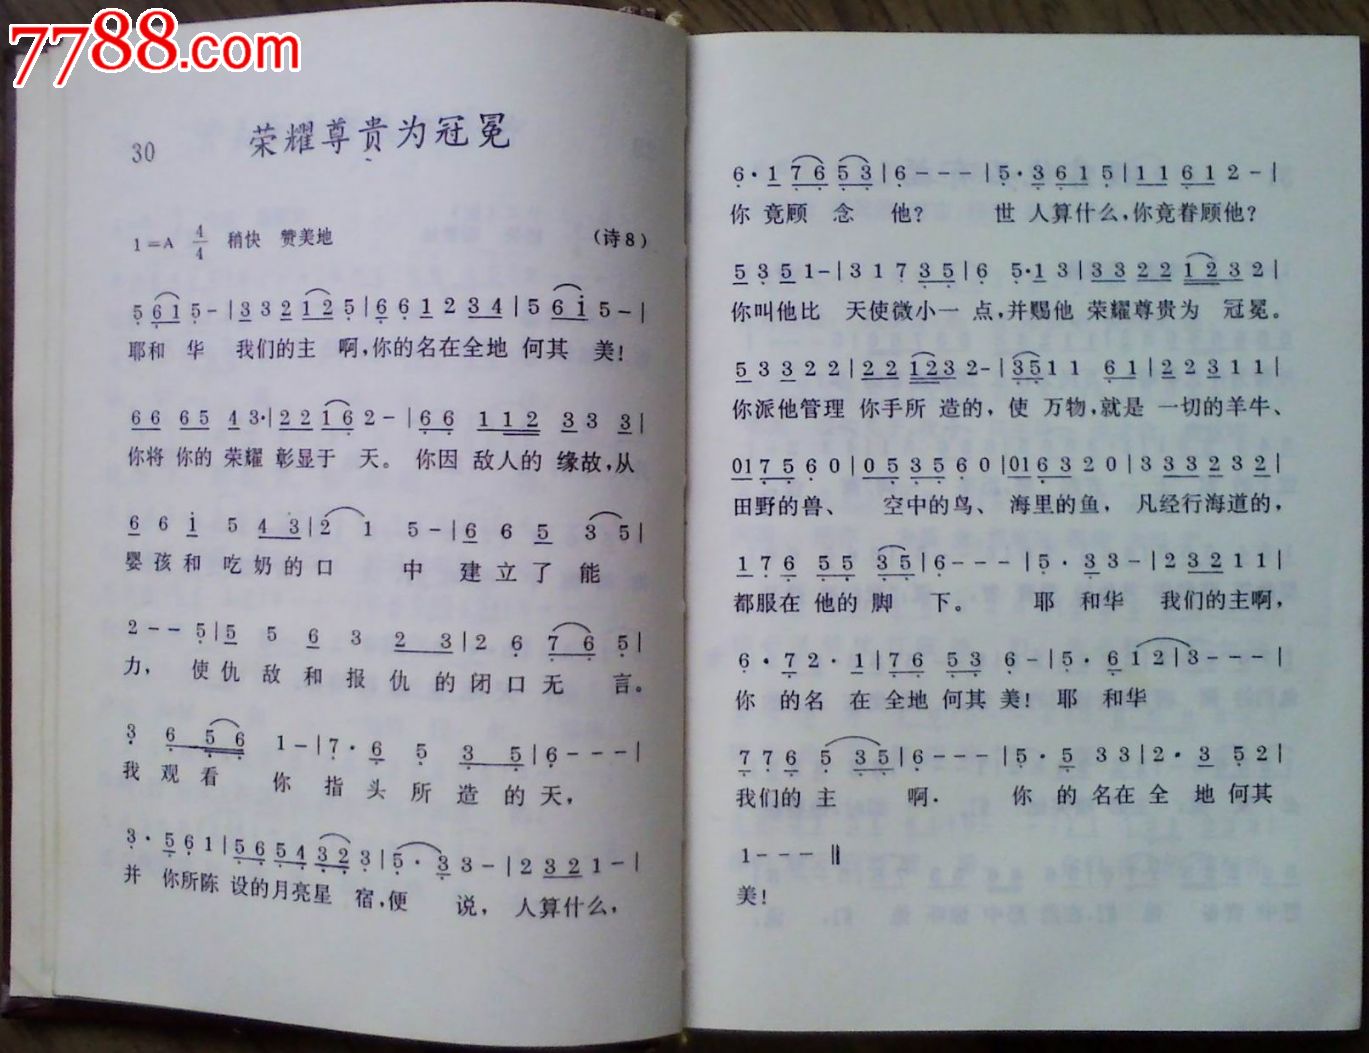 7788.com
30 荣耀尊贵为冠冕
1=A 4/4 稍快 赞美地 (诗8)
5 6 1 5 - | 3 3 2 1 2 5 | 6 6 1 2 3 4 | 5 6 i 5 - |
耶和 华 我们的主 啊,你的名在全地 何其 美!
6 6 6 5 4 3· | 2 2 1 6 2 - | 6 6 1 1 2 3 3 3 |
你将 你的 荣耀 彰显于 天。 你因 敌人的 缘故,从
6 6 i 5 4 3 | 2 1 5 - | 6 6 5 3 5 |
婴孩和 吃奶的口 中 建立了 能
2 - - 5 | 5 5 6 3 2 3 | 2 6 7 6 5 |
力, 使仇 敌 和 报 仇 的 闭 口 无 言。
3 6 5 6 1 - | 7 · 6 5 3 5 | 6 - - - |
我 观 看 你 指 头 所 造 的 天,
3 · 5 6 1 | 5 6 5 4 3 2 3 | 5 · 3 3 - | 2 3 2 1 - |
并 你所陈 设的月亮星 宿,便 说, 人算什么,
6 · 1 7 6 5 3 | 6 - - - | 5 · 3 6 1 5 | 1 1 6 1 2 - |
你 竟顾 念 他? 世 人算什么,你竟眷顾他?
5 3 5 1 - | 3 1 7 3 5 | 6 5 · 1 3 | 3 3 2 2 1 2 3 2 |
你叫他比 天使微小一 点,并赐他 荣耀尊贵为 冠冕。
5 3 3 2 2 | 2 2 1 2 3 2 - | 3 5 1 1 6 1 | 2 2 3 1 1 |
你派他管理 你手所 造的, 使 万物,就是 一切的羊牛、
0 1 7 5 6 0 | 0 5 3 5 6 0 | 0 1 6 3 2 0 | 3 3 3 2 3 2 |
田野的兽、 空中的鸟、 海里的鱼, 凡经行海道的,
1 7 6 5 5 3 5 | 6 - - - | 5 · 3 3 - | 2 3 2 1 1 |
都服在 他的 脚 下。 耶 和华 我们的主啊,
6 · 7 2 · 1 | 7 6 5 3 6 - | 5 · 6 1 2 | 3 - - - |
你 的名 在 全地 何其 美! 耶 和华
7 7 6 5 3 5 | 6 - - - | 5 · 5 3 3 | 2 · 3 5 2 |
我们的 主 啊. 你 的 名在 全 地 何其
1 - - - ‖
美!